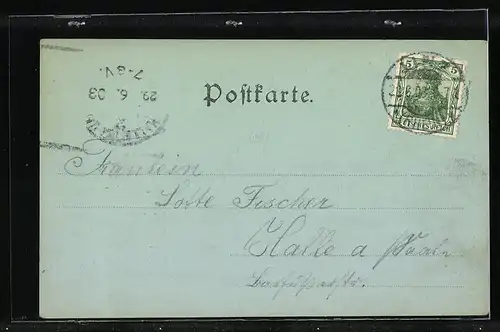 Postkarte.
7-8V.
22. 6. 03
5 5
Fräulein
Lotte Fischer
Halle a Saale